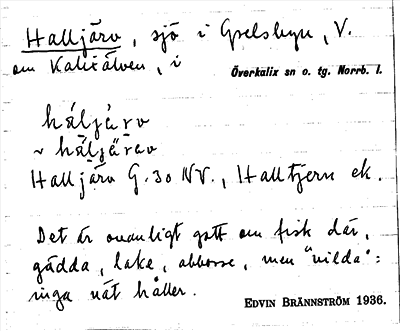 Halljärv, sjö i Gyelsbyn, V.
om Kalixälven, i
Överkalix sn o. tg. Norrb. l.
háljàrv
~ háljä̀rav
Halljärv G. 30 NV., Halltjern ek.
Det är ovanligt gott om fisk där,
gädda, lake, abborre, men "vilda":
inga nät håller.
EDVIN BRÄNNSTRÖM 1936.